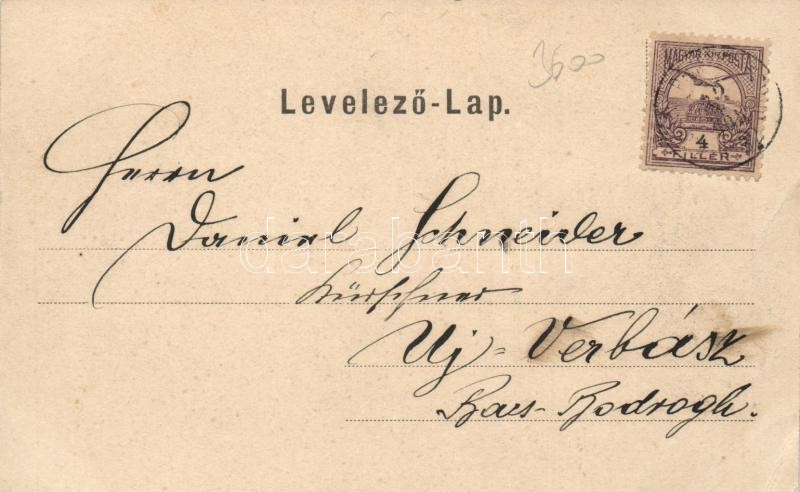 3600
MAGYAR KIR. POSTA
Levelező-Lap.
4
FILLÉR
Herrn
Daniel Schneider
darabanth
Kürschner
Uj-Verbász
Bacs-Bodrogh.